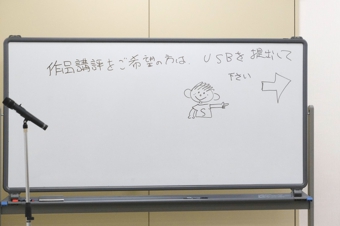 作品講評をご希望の方は USBを提出して
下さい